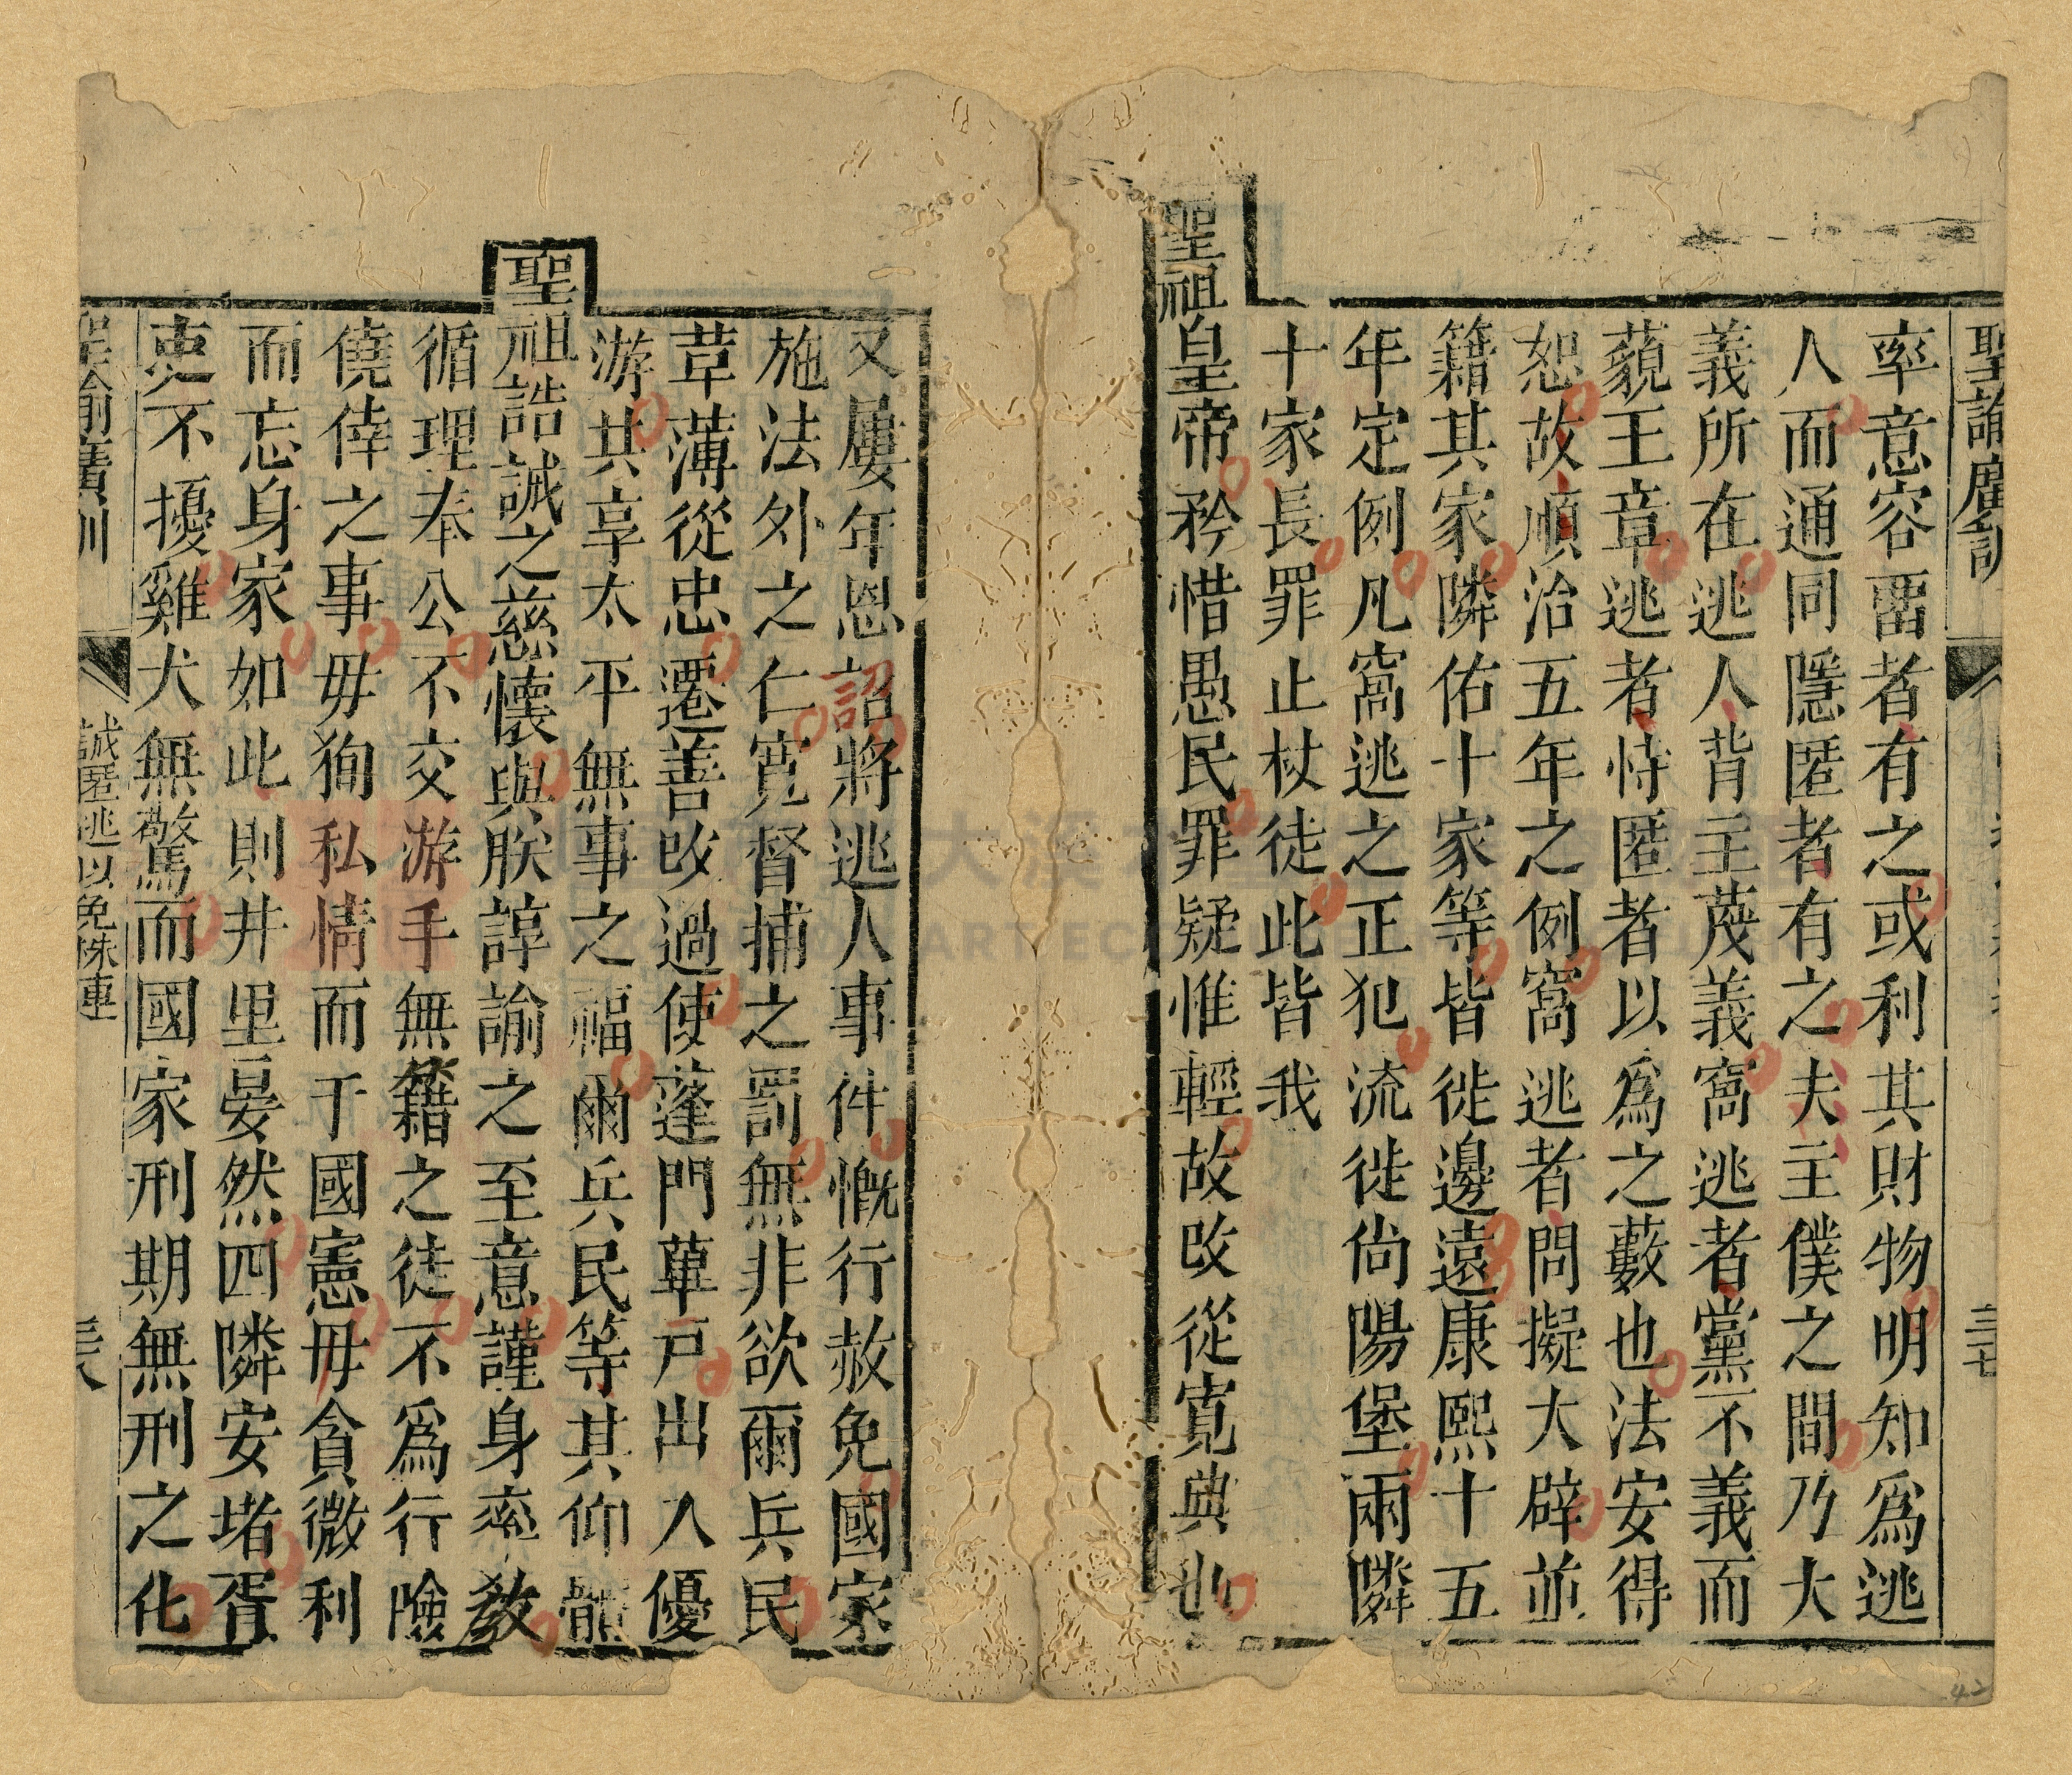 聖諭廣訓
三七
率意容畱者有之或利其財物明知爲逃
人而通同隱匿者有之夫主僕之間乃大
義所在逃人背主蔑義窩逃者黨不義而
藐王章逃者恃匿者以爲之藪也法安得
恕故順治五年之例窩逃者問擬大辟並
籍其家隣佑十家等皆徙邊遠康熙十五
年定例凡窩逃之正犯流徙尙陽堡兩隣
十家長罪止杖徒此皆我
聖祖皇帝矜惜愚民罪疑惟輕故攺從寬典也
又屢年恩詔將逃人事件慨行赦免國家
施法外之仁寬督捕之罰無非欲爾兵民
革薄從忠遷善攺過使蓬門蓽戸出入優
游共享太平無事之福爾兵民等其仰體
聖祖誥誡之慈懷與朕諄諭之至意謹身率敎
循理奉公不交游手無籍之徒不爲行險
僥倖之事毋狥私情而干國憲毋貪微利
而忘身家如此則井里晏然四隣安堵胥
吏不擾雞犬無驚而國家刑期無刑之化
聖諭廣訓
誡匿逃以免株連
三八
42